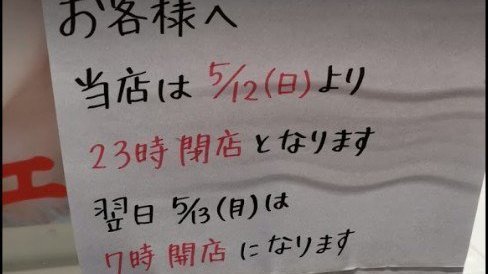 お客様へ
当店は 5/12(日)より
23時閉店となります
翌日 5/13(月)は
7時開店になります